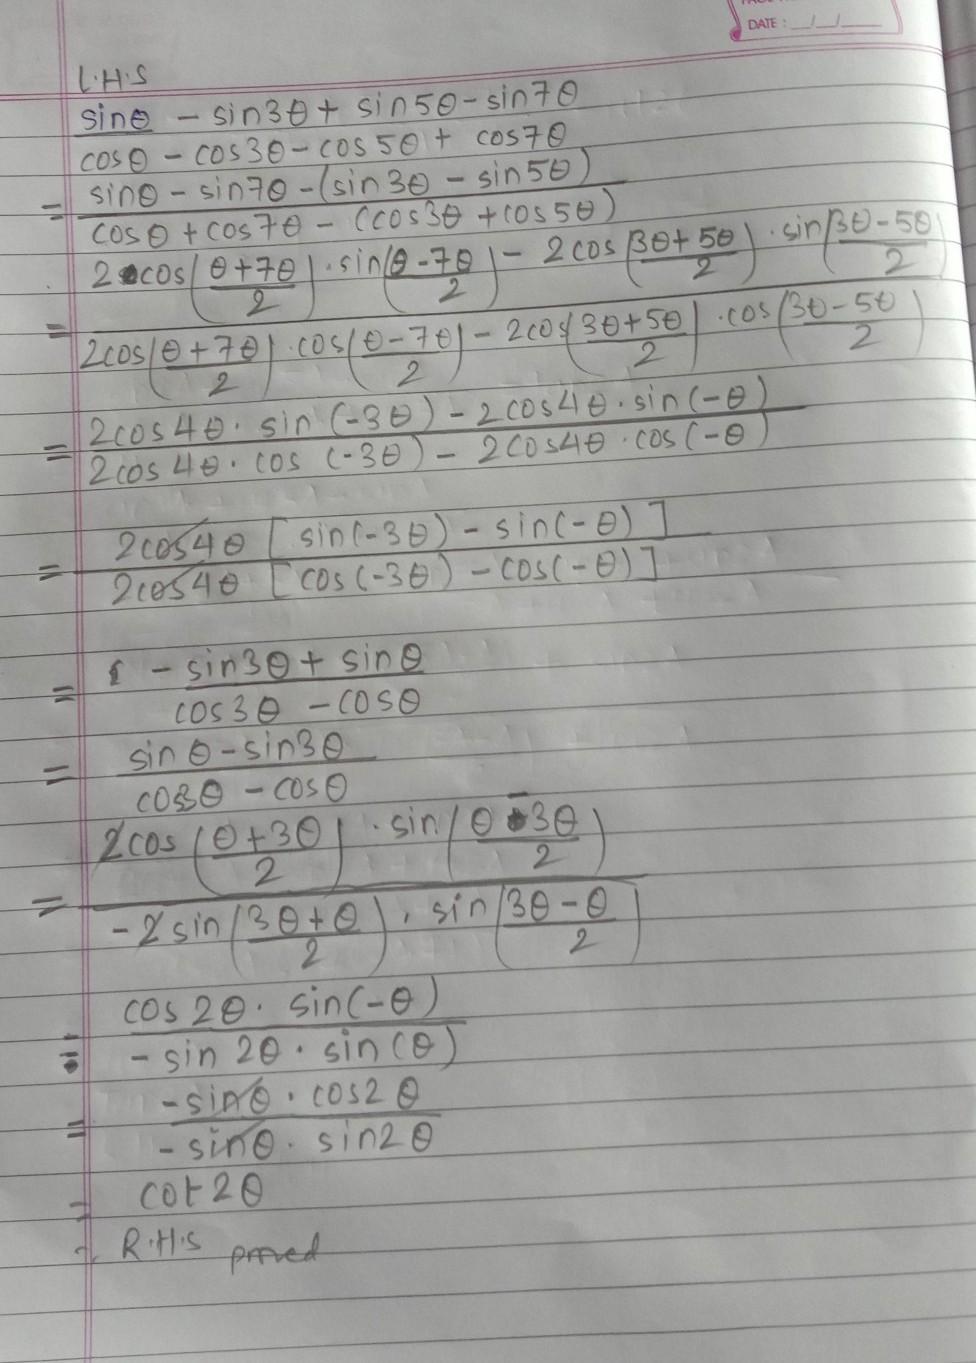 DATE : __/__/____
L.H.S
sinθ - sin3θ + sin5θ - sin7θ
cosθ - cos3θ - cos5θ + cos7θ
= sinθ - sin7θ - (sin3θ - sin5θ)
cosθ + cos7θ - (cos3θ + cos5θ)
2 cos(θ+7θ/2) · sin(θ-7θ/2) - 2cos(3θ+5θ/2) · sin(3θ-5θ/2)
= 2cos(θ+7θ/2) · cos(θ-7θ/2) - 2cos(3θ+5θ/2) · cos(3θ-5θ/2)
= 2cos4θ · sin(-3θ) - 2cos4θ · sin(-θ)
2cos4θ · cos(-3θ) - 2cos4θ · cos(-θ)
= 2cos4θ [sin(-3θ) - sin(-θ)]
2cos4θ [cos(-3θ) - cos(-θ)]
= - sin3θ + sinθ
cos3θ - cosθ
= sinθ - sin3θ
cos3θ - cosθ
2cos(θ+3θ/2) · sin(θ-3θ/2)
= -2sin(3θ+θ/2) · sin(3θ-θ/2)
= cos2θ · sin(-θ)
- sin2θ · sin(θ)
= -sinθ · cos2θ
-sinθ · sin2θ
= cot2θ
∴ R.H.S proved